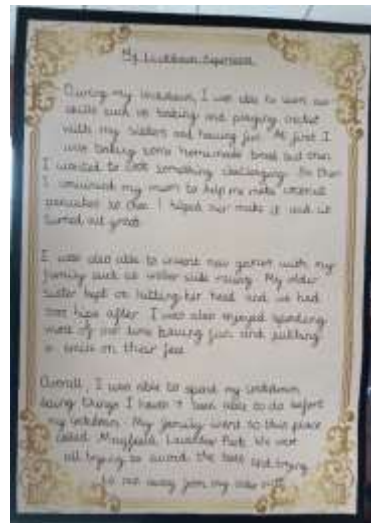 My Lockdown Experience
During my lockdown, I was able to learn new
skills such as baking and playing cricket
with my sisters and having fun. At first I
was baking some homemade bread but then
I wanted to cook something challenging. So then
I convinced my mum to help me make
pancakes so then I helped her make it and it
turned out great.
I was also able to invent new games with my
family such as water slide racing. My older
sister kept on hitting her head and we had
after. I was also enjoyed spending
most of our time having fun and putting
a smile on their face.
Overall, I was able to spend my lockdown
doing things I haven't been able to do before
my lockdown. My family went to this place
called Mayfield Lavender Park. We were
all trying to avoid the bees and trying
to run away from my